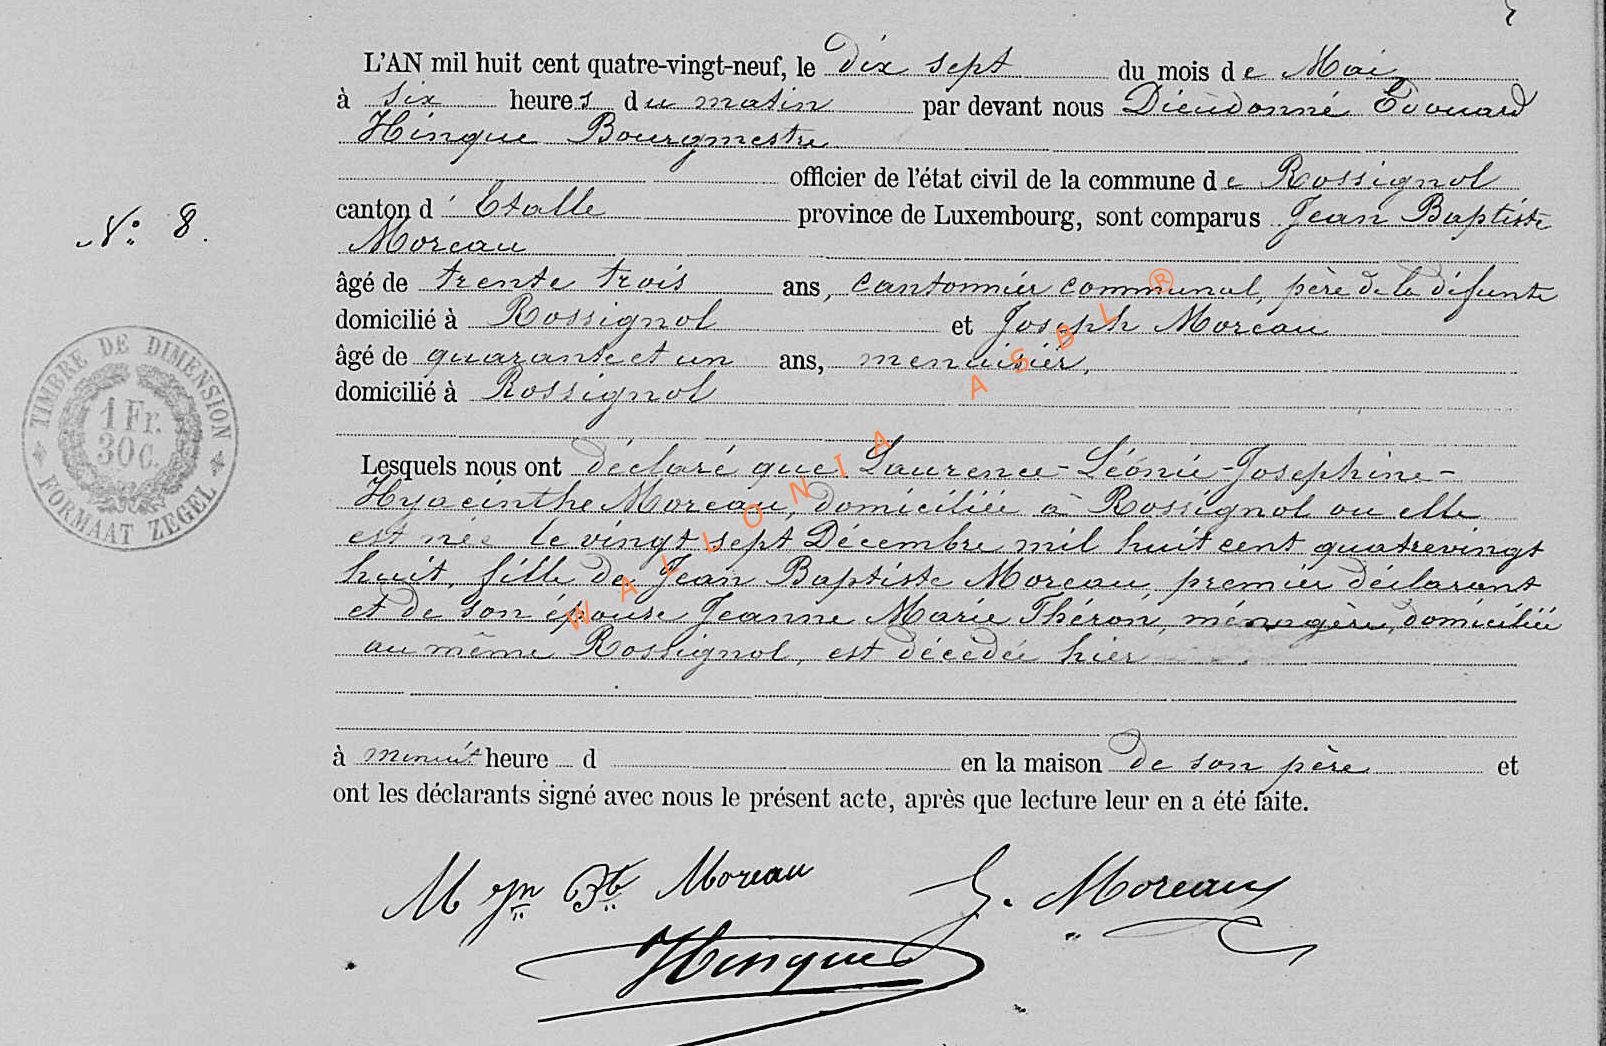 L'AN mil huit cent quatre-vingt-neuf, le dix sept du mois de Mai
à six heures du matin par devant nous Dieudonné Edouard
Hinque Bourgmestre
officier de l'état civil de la commune de Rossignol
canton d'Etalle province de Luxembourg, sont comparus Jean Baptiste
Moreau
N° 8.
âgé de trente trois ans, cantonnier communal, père de la défunte
domicilié à Rossignol et Joseph Moreau
âgé de quarante et un ans, menuisier,
domicilié à Rossignol
TIMBRE DE DIMENSION
1 Fr.
30 c.
FORMAAT ZEGEL
Lesquels nous ont déclaré que Laurence-Léonie-Josephine-
Hyacinthe Moreau, domiciliée à Rossignol ou elle
est née le vingt sept Décembre mil huit cent quatrevingt
huit, fille de Jean Baptiste Moreau, premier déclarant
et de son épouse Jeanne Marie Théron, ménagère, domiciliée
au même Rossignol, est décédée hier
à minuit heure d en la maison de son père et
ont les déclarants signé avec nous le présent acte, après que lecture leur en a été faite.
M Jn Bte Moreau J. Moreau
Hinque
WALLONIA ASBL ®